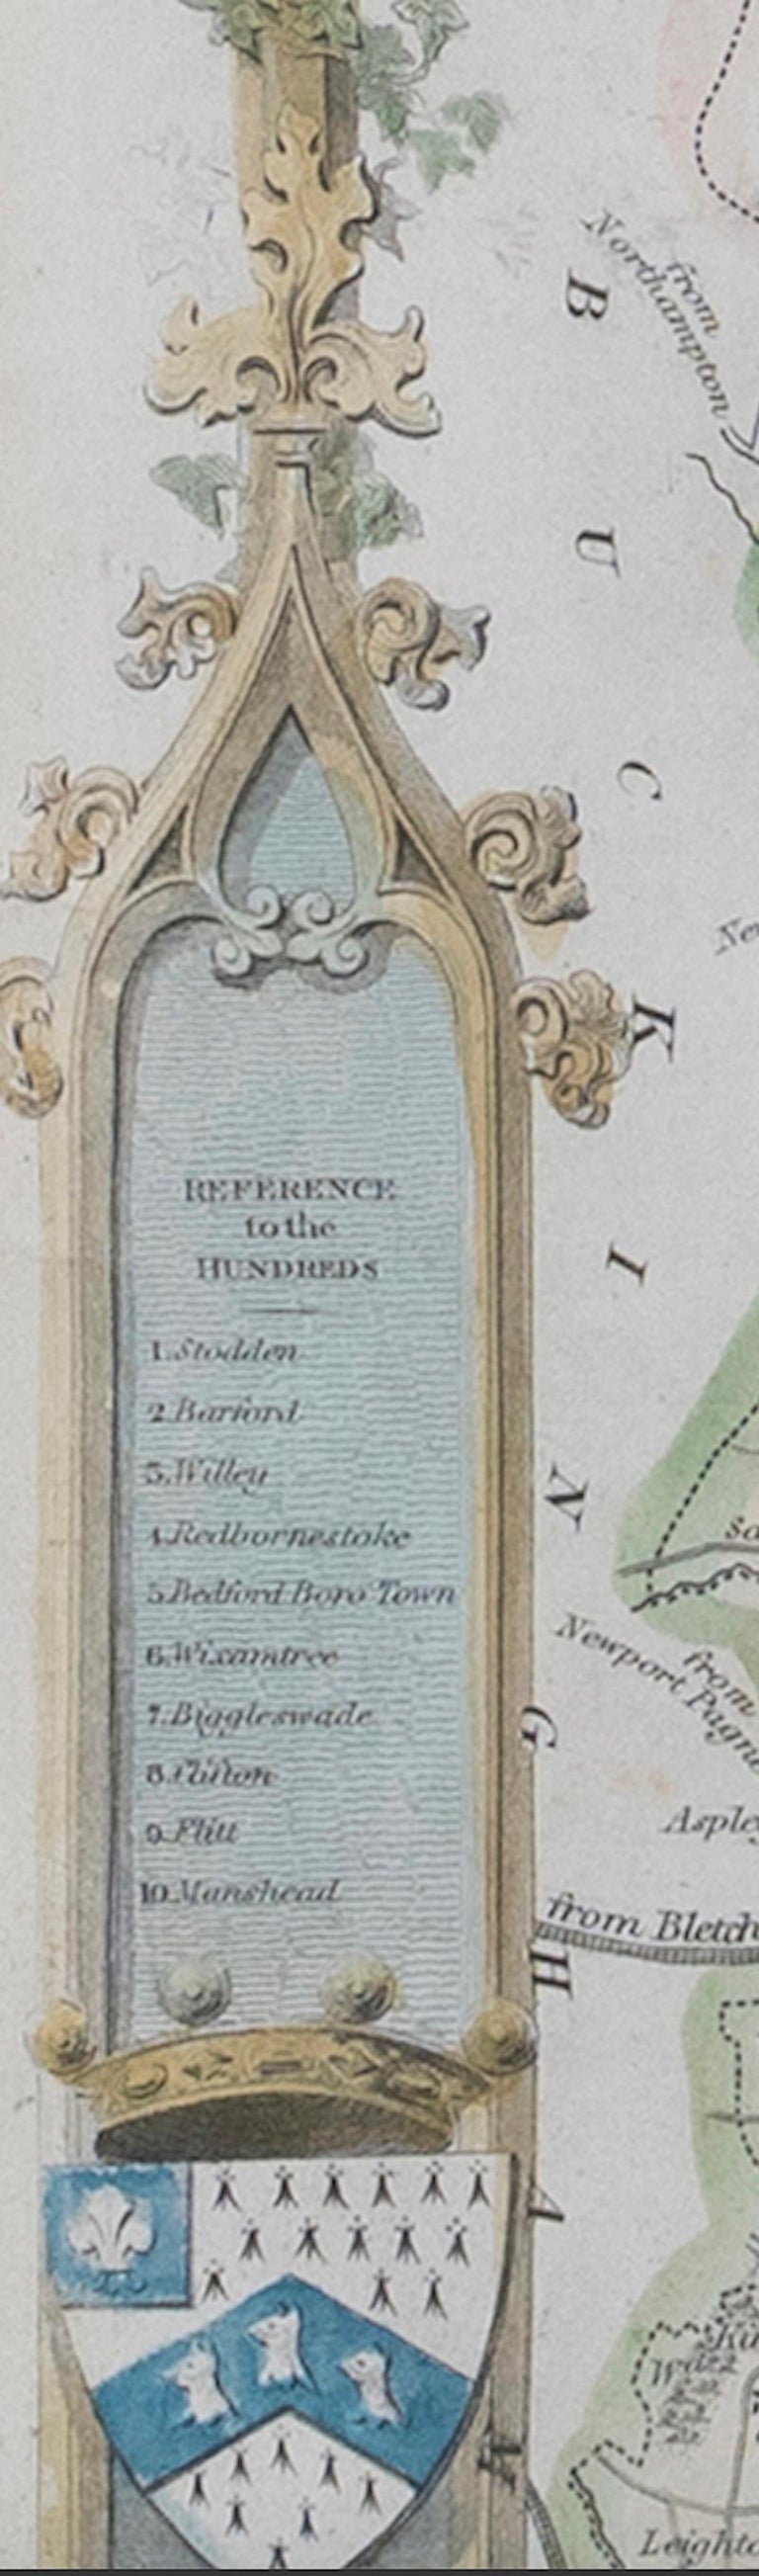 REFERENCE
to the
HUNDREDS
1. Stodden
2. Barford
3. Willey
4. Redbornestoke
5. Bedford Boro Town
6. Wixamtree
7. Biggleswade
8. Clifton
9. Flitt
10. Manshead
B U C K I N G H A M
from
Northampton
from
Newport Pagn
Aspley
from Bletch
Leighto